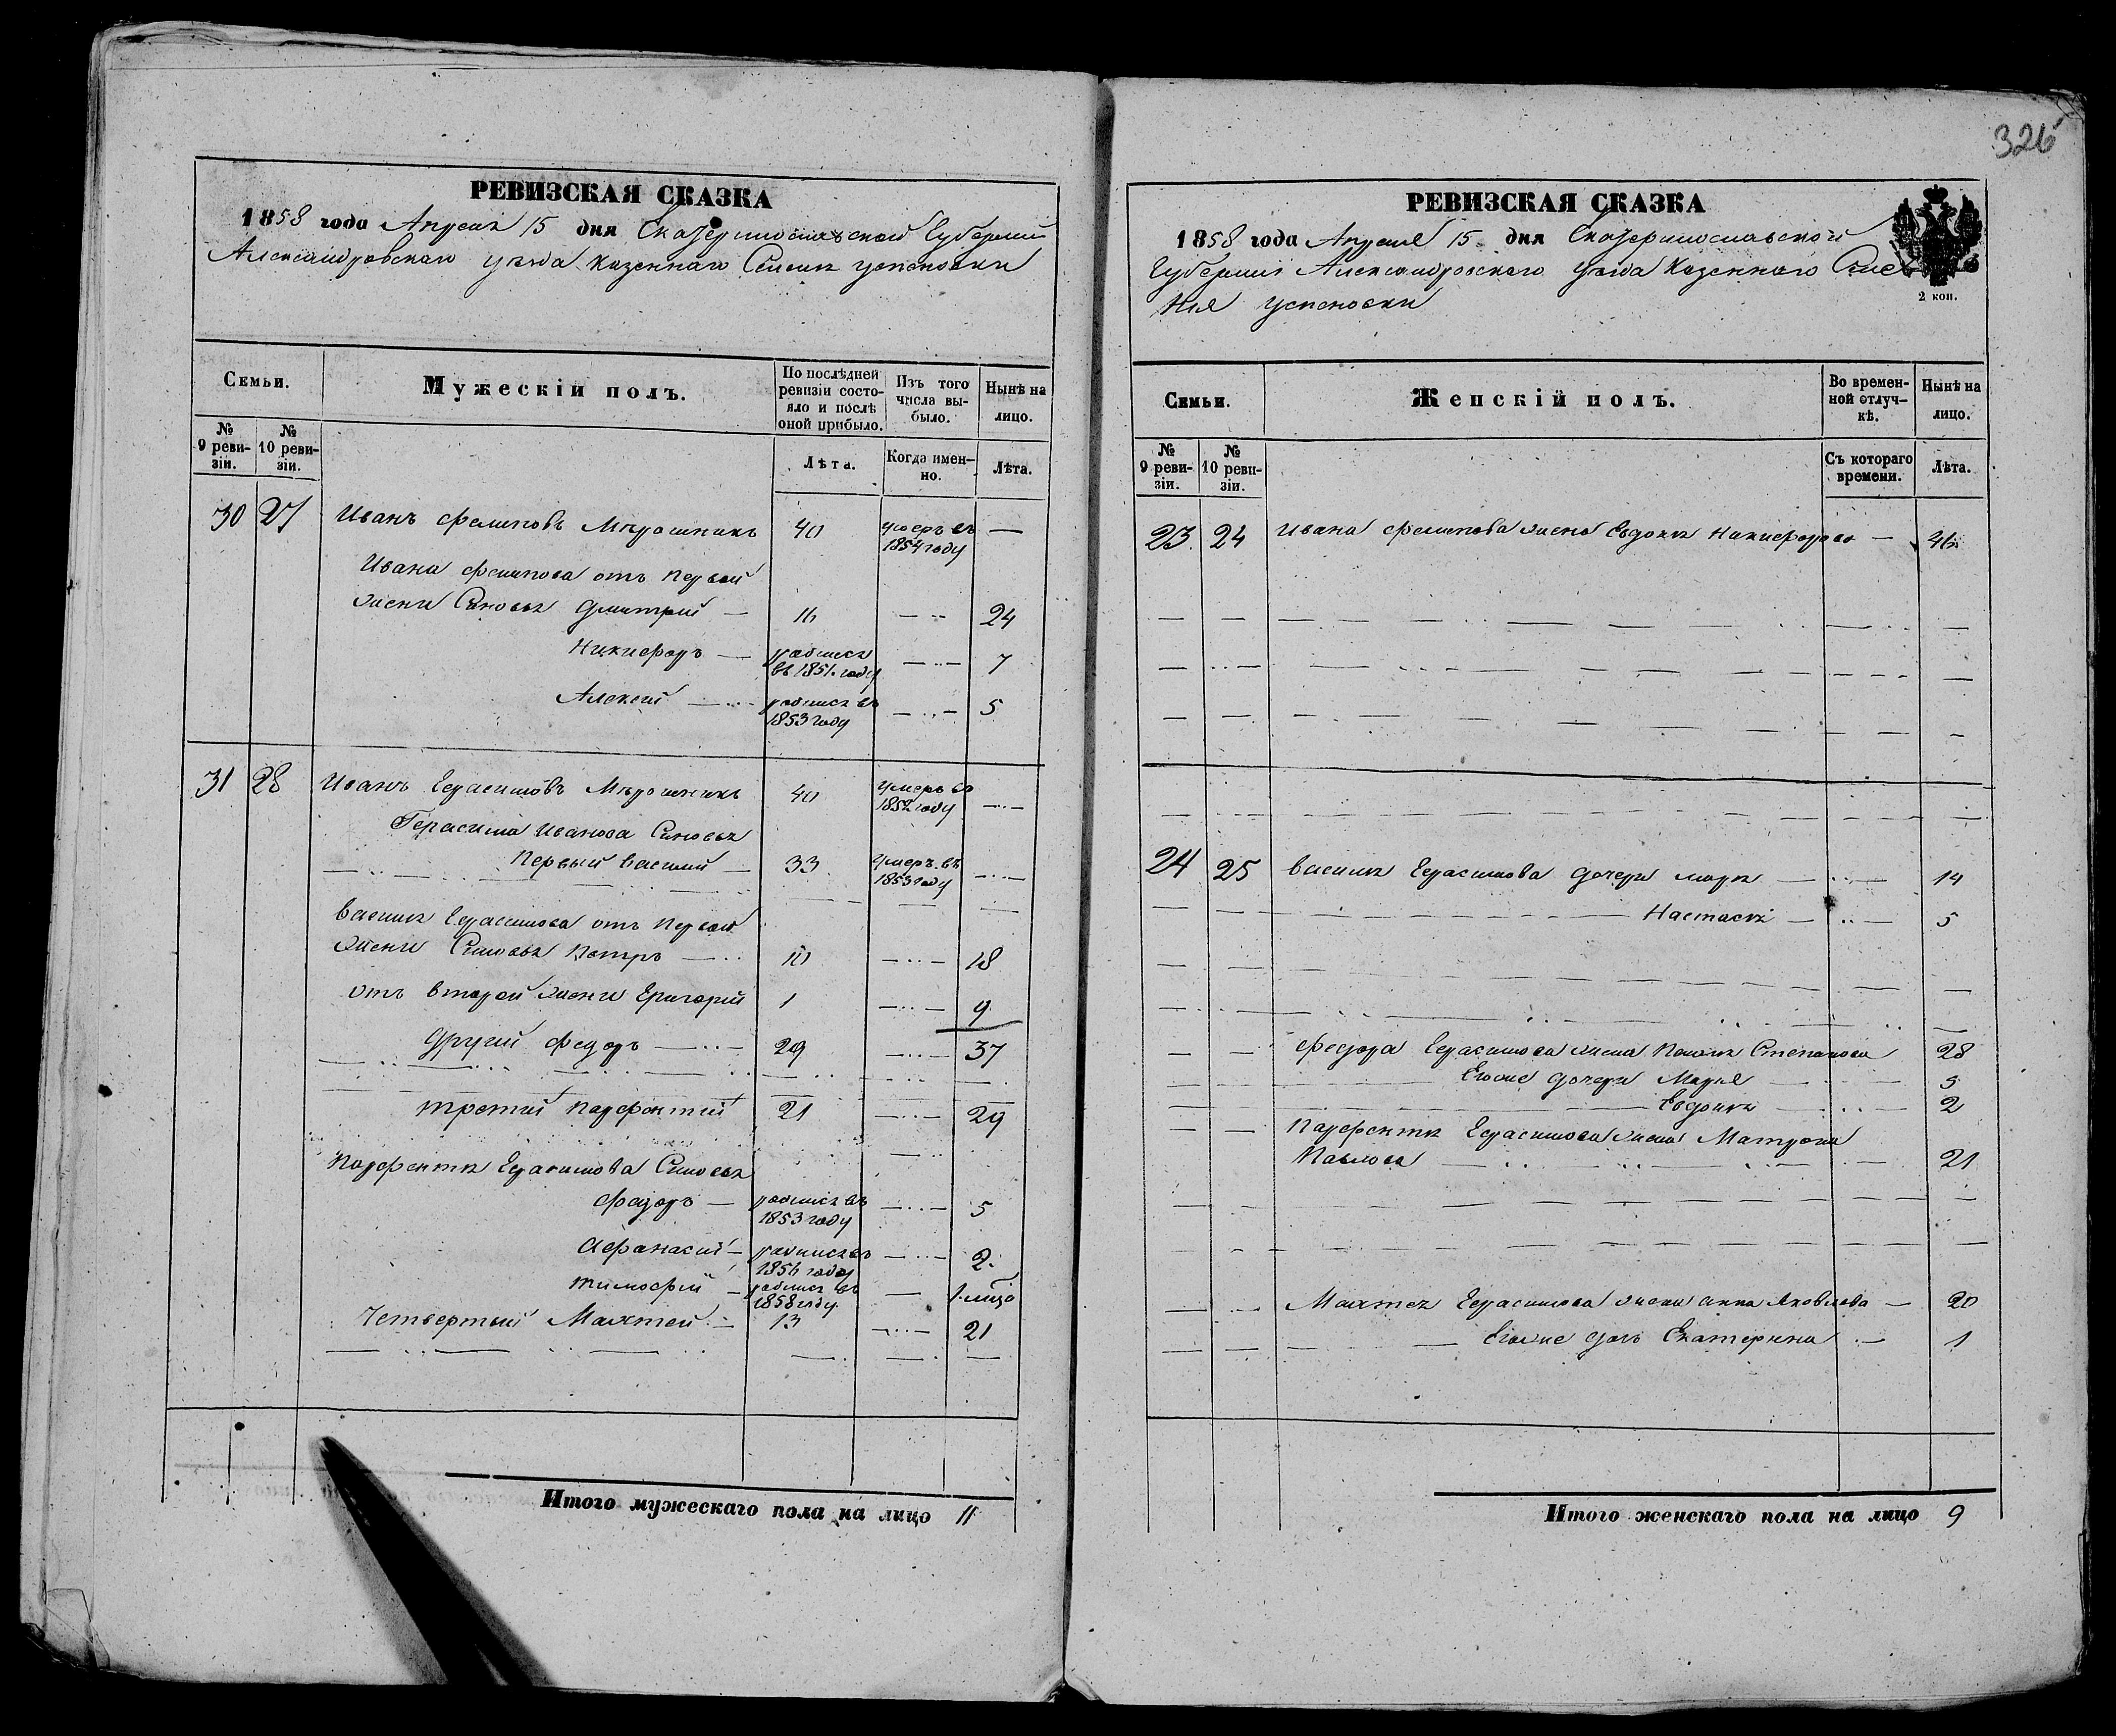 326
РЕВИЗСКАЯ СКАЗКА
1858 года Апреля 15 дня Екатеринославской Губернии
Александровского уезда Казенного Селения Успеновки
Семьи.
Мужескій полъ.
По послѣдней ревизіи состояло и послѣ оной прибыло.
Изъ того числа выбыло.
Нынѣ на лицо.
№ 9 ревизіи.
№ 10 ревизіи.
Лѣта.
Когда именно.
Лѣта.
30 27 Иванъ Филиповъ Мирошникъ 40 умеръ въ 1854 году —
Ивана Филипова отъ первой
жены Сыновья Дмитрий — 16 — 24
Никифоръ — родился въ 1851 году — 7
Алексей — родился въ 1853 году — 5
31 28 Иванъ Герасимовъ Мирошникъ 40 умеръ въ 1852 году —
Герасима Иванова Сыновья
Первый Василий — 33 умеръ въ 1853 году —
Василия Герасимова отъ первой
жены Сыновья Петръ — 10 — 18
отъ второй жены Григорий 1 — 9
Другий Федоръ — 29 — 37
третий Парфентий 21 — 29
Парфентия Герасимова Сыновья
Федоръ — родился въ 1853 году — 5
Афанасий — родился въ 1856 году — 2
Тимофей — родился въ 1858 году —
Четвертый Мактей — 13 — 21
Итого мужескаго пола на лицо 11
РЕВИЗСКАЯ СКАЗКА
1858 года Апреля 15 дня Екатеринославской
Губернии Александровского уезда Казенного Селе
ния Успеновки
2 коп.
Семьи.
Женскій полъ.
Во временной отлучкѣ.
Нынѣ на лицо.
№ 9 ревизіи.
№ 10 ревизіи.
Съ котораго времени.
Лѣта.
23 24 Ивана Филипова жена Евдокия Никифорова — 46
24 25 Василия Герасимова дочери Мария — 14
Настасия — 5
Федора Герасимова жена Степанова 28
Егоже дочери Мария — 5
Евдокия — 2
Парфентия Герасимова жена Матрона
Павлова — 21
Мактея Герасимова жена Анна Яковлева — 20
Егоже дочь Екатерина — 1
Итого женскаго пола на лицо 9